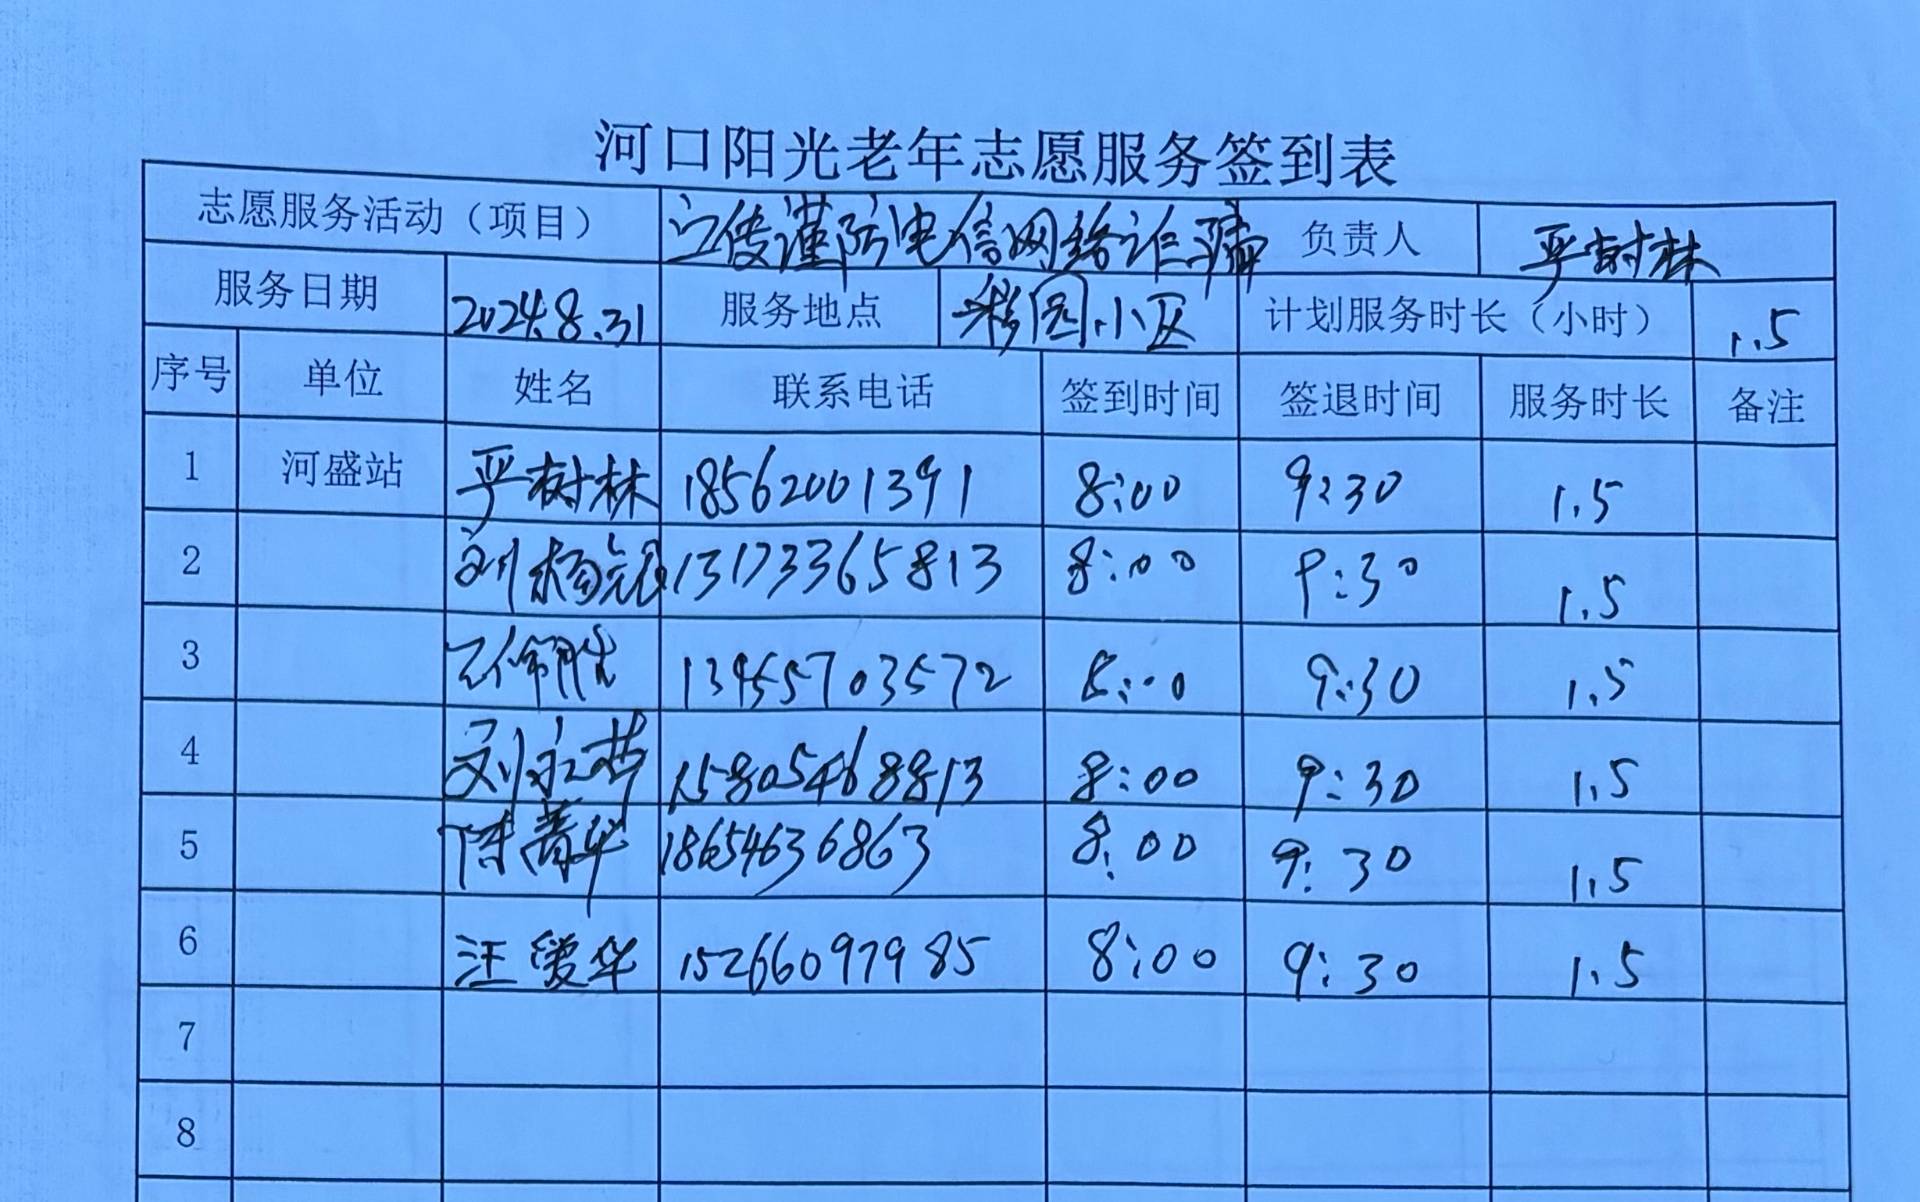 河口阳光老年志愿服务签到表
志愿服务活动（项目） 宣传谨防电信网络诈骗 负责人 严树林
服务日期 2024.8.31 服务地点 小区 计划服务时长（小时） 1.5
序号 单位 姓名 联系电话 签到时间 签退时间 服务时长 备注
1 河盛站 严树林 18562001391 8:00 9:30 1.5
2 刘杨 13173365813 8:00 9:30 1.5
3 13455703572 8:00 9:30 1.5
4 刘永芹 15805468813 8:00 9:30 1.5
5 陈菁华 18654636863 8:00 9:30 1.5
6 汪爱华 15266097985 8:00 9:30 1.5
7
8